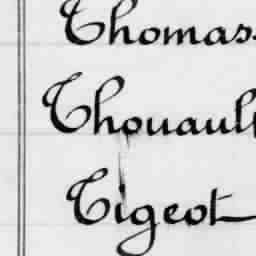 Thomass
Thouault
Tigeot